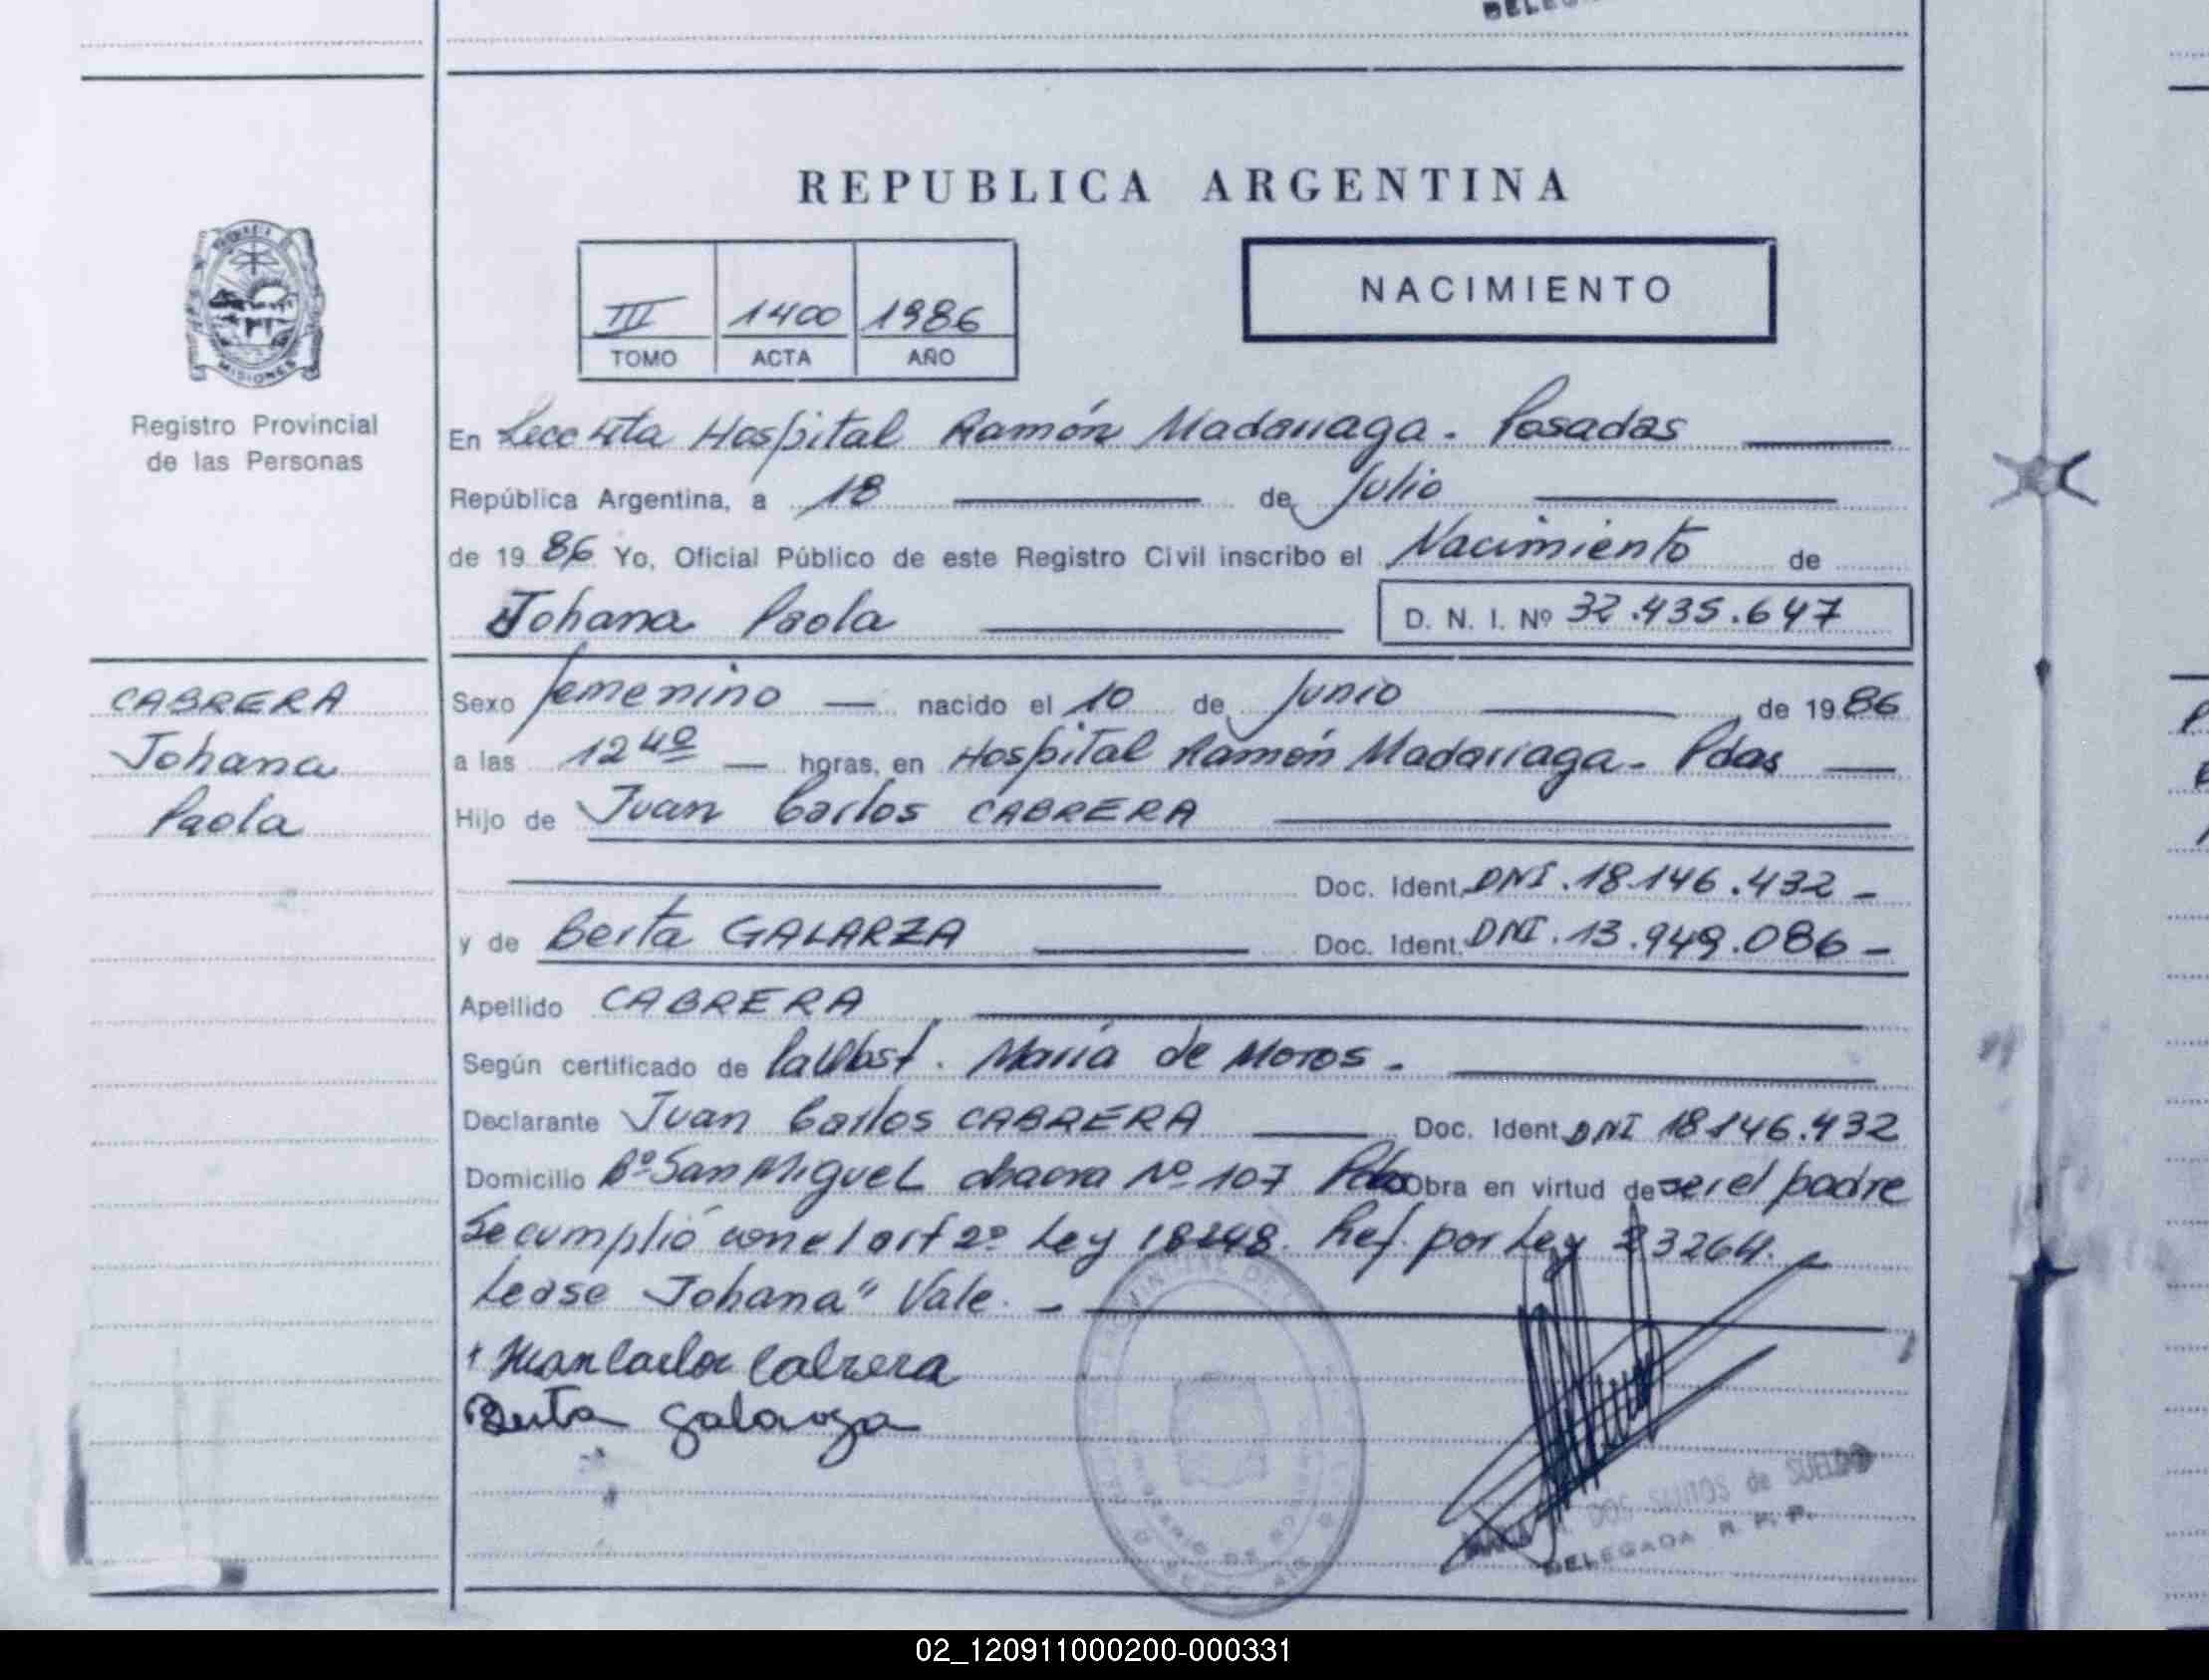 REPUBLICA ARGENTINA
III 1400 1986
TOMO ACTA AÑO
NACIMIENTO
PROVINCIA DE
MISIONES
Registro Provincial
de las Personas
En Secc 4ta Hospital Ramón Madariaga. Posadas
República Argentina, a 18 de Julio
de 1986 Yo, Oficial Público de este Registro Civil inscribo el Nacimiento de
Johana Paola D. N. I. Nº 32.435.647
CABRERA
Johana
Paola
Sexo femenino nacido el 10 de Junio de 1986
a las 12 40 horas, en Hospital Ramón Madariaga - Pdas
Hijo de Juan Carlos CABRERA
Doc. Ident. DNI. 18.146.432 -
y de Berta GALARZA Doc. Ident. DNI. 13.949.086 -
Apellido CABRERA
Según certificado de Maria de Moros -
Declarante Juan Carlos CABRERA Doc. Ident DNI 18146.432
Domicilio Bº San Miguel chacra Nº 107 Pdas Obra en virtud de ser el padre
Se cumplió con el art 2º Ley 18248. Ref. por Ley 23264. -
Lease Johana" Vale. -
Juan Carlos Cabrera
Berta Galarza
DOS SANTOS de SUELDO
DELEGADA R. P. P.
02_120911000200-000331